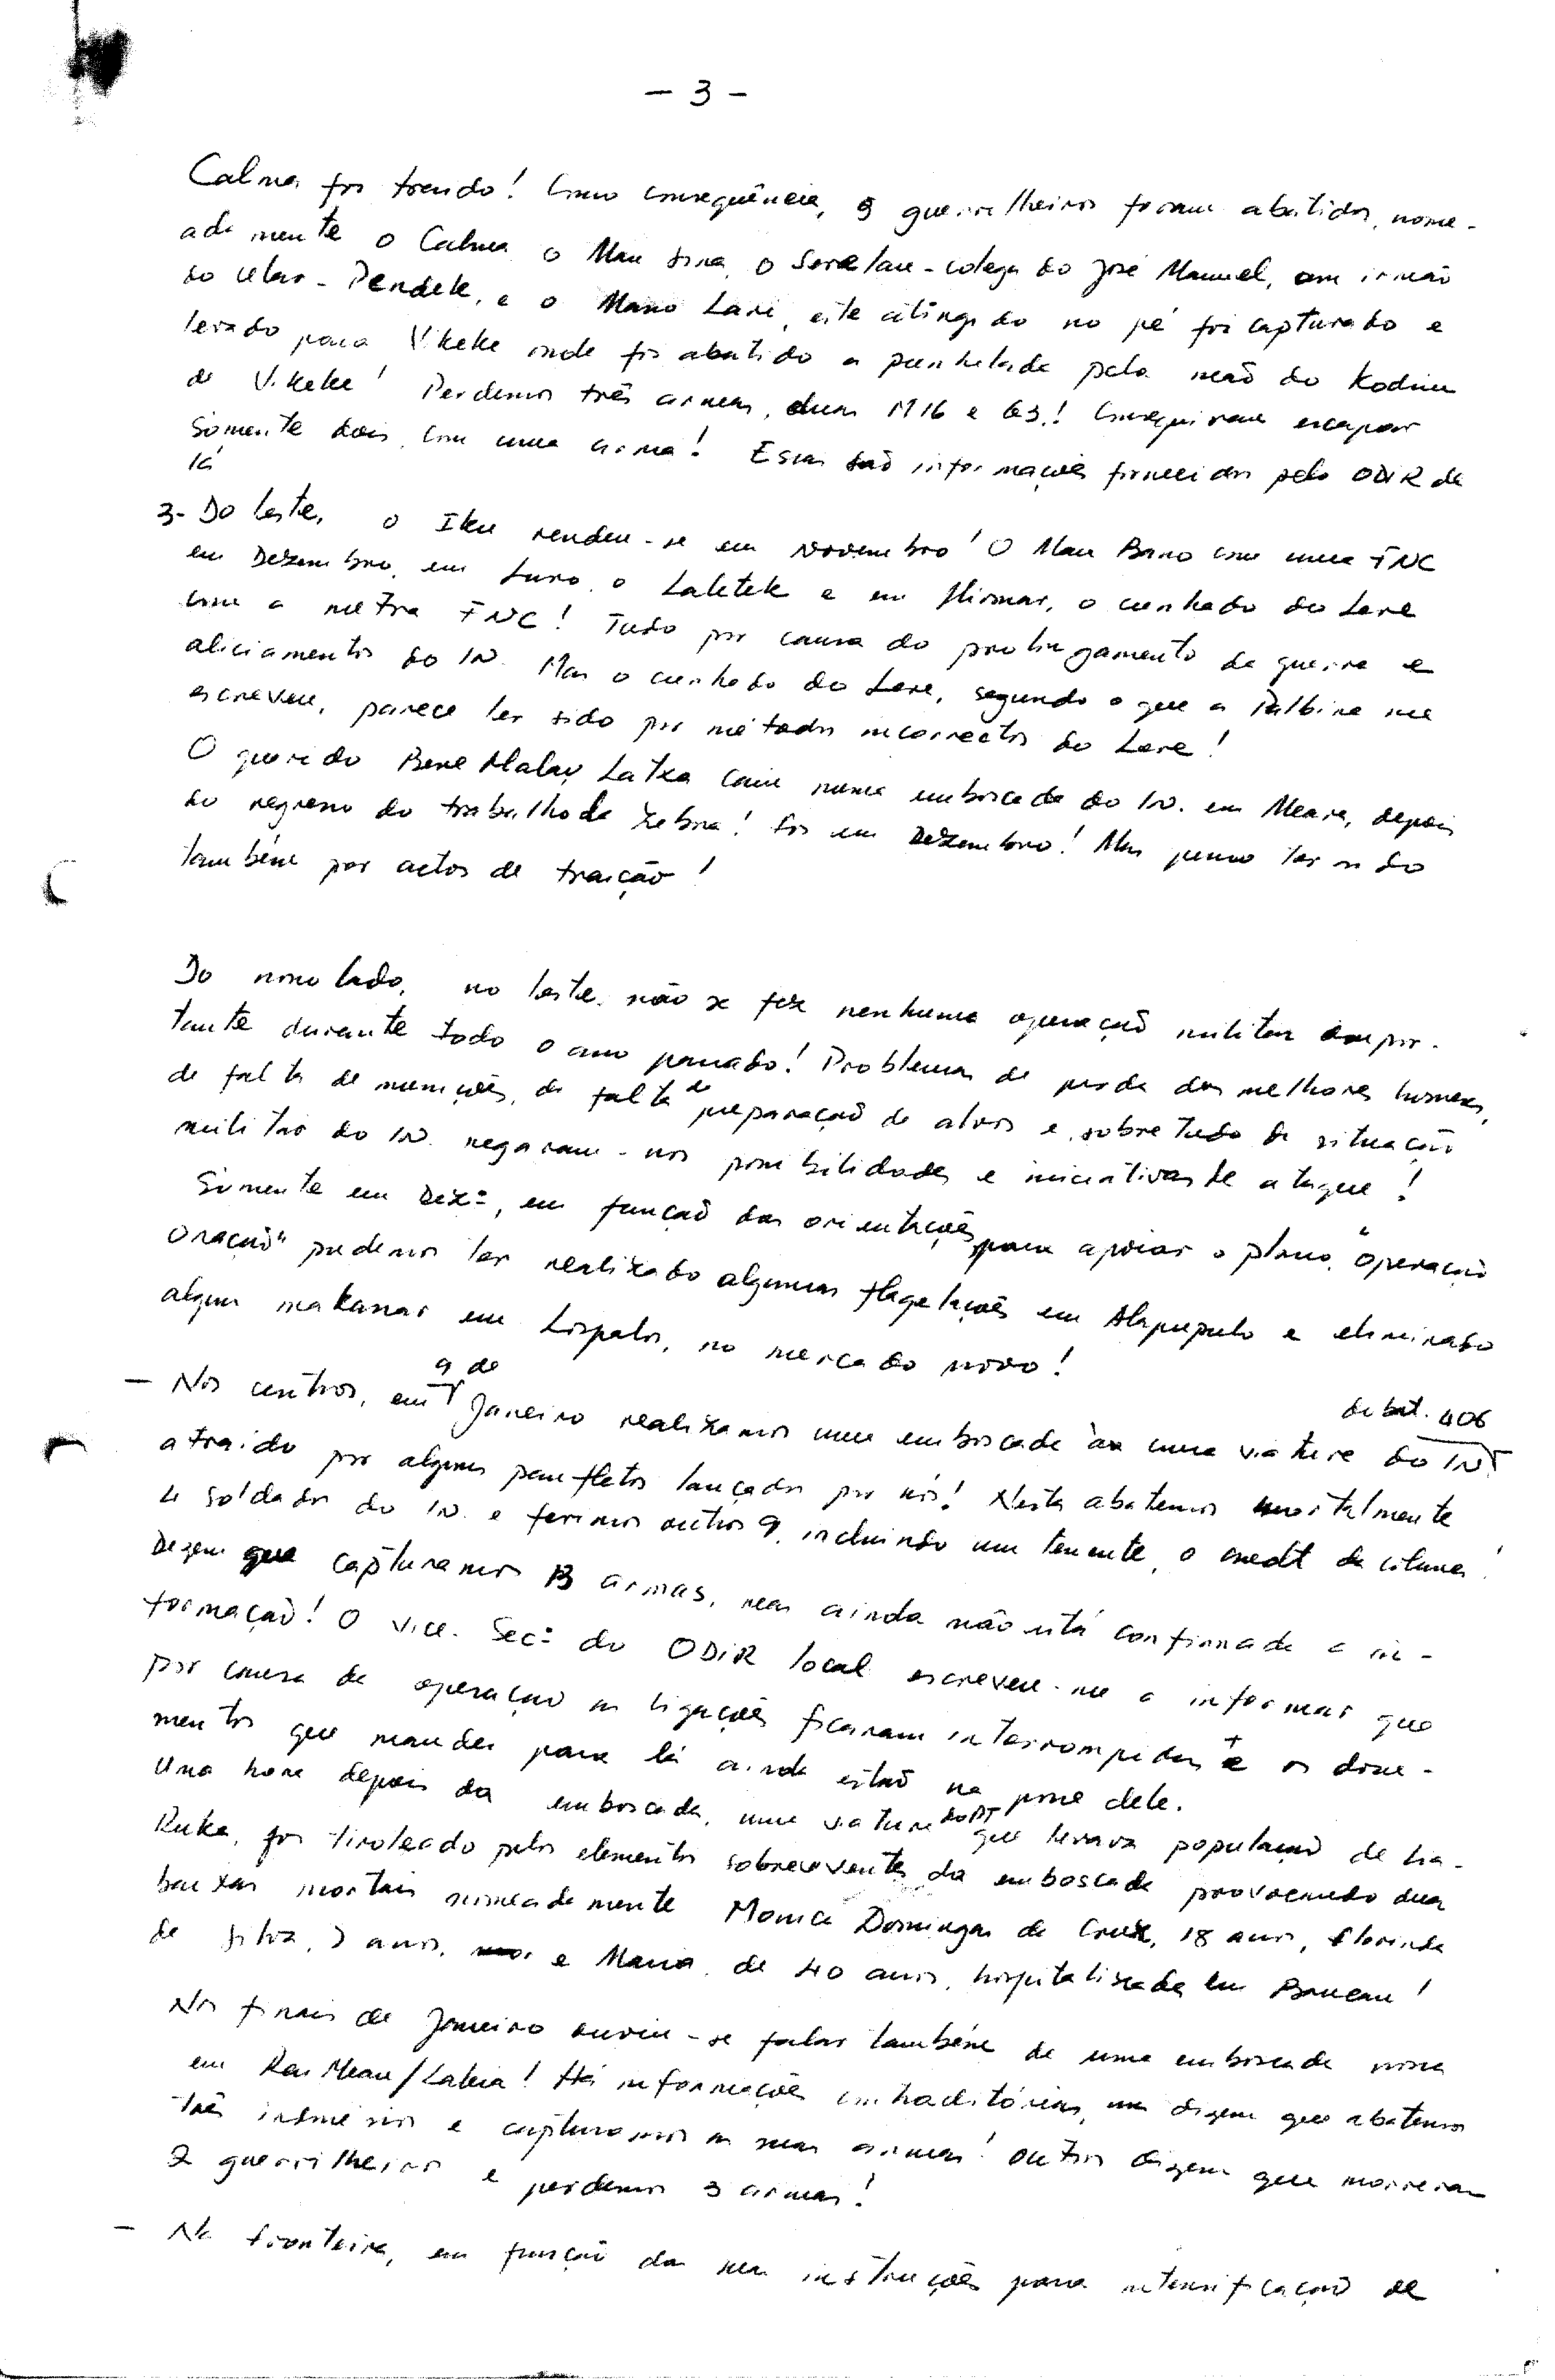 - 3 -
Calma foi traído! Como consequência, 5 guerrilheiros foram abatidos, nome-
adamente o Calma o Mau Sina, o Seralau - colega do José Manuel, um irmão
do Celar - Pendek, e o Mano Lari, este atingido no pé foi capturado e
levado para Vikeke onde foi abatido a punhalada pela mão do Kodim
de Vikeke! Perdemos três armas, duas M16 e G3! Conseguiram escapar
somente dois, com uma arma! Essas são informações fornecidas pelo ODIR de
lá
3- Do leste, o Iku rendeu-se em Novembro! O Mau Bano com uma FNC
em Dezembro, em Luro, o Laletek e em Mirmar, o cunhado do Lere
com a metra FNC! Tudo por causa do prolongamento da guerra e
aliciamentos do IN. Mas o cunhado do Lere, segundo o que a Balbina me
escreveu, parece ter sido por métodos incorrectos do Lere!
O querido Bere Malay Latxa caiu numa emboscada do IN. em Meara, depois
do regresso do trabalho da Zebra! Foi em Dezembro! Mas penso ter sido
também por actos de traição!
Do nosso lado, no leste, não se fez nenhuma operação militar impor-
tante durante todo o ano passado! Problemas de perda dos melhores homens,
de falta de munições, de falta de preparação de alvos e, sobretudo da situação
militar do IN. negaram-nos possibilidades e iniciativas de ataque!
Somente em Dezº, em função das orientações para apoiar o plano "operação
oração" pudemos ter realizado algumas flagelações em Alapupulo e eliminado
algum makanar em Lospalos, no mercado novo!
- Nos centros, em 9 de Janeiro realizamos uma emboscada à uma viatura do IN. do bat. 406
atraido por alguns panfletos lançados por nós! Nesta abatemos mortalmente
4 soldados do IN. e ferimos outros 9, incluindo um tenente, o cmdt da coluna!
Dizem que capturamos 13 armas, mas ainda não está confirmada a in-
formação! O Vice-Secº do ODIR local escreveu-me a informar que
por causa da operação as ligações ficaram interrompidas e os docu-
mentos que mandei para lá ainda estão na posse dele.
Uma hora depois da emboscada, uma viatura que levava população de Lia-
Ruka, foi tiroteado pelos elementos sobreviventes da emboscada provocando duas
baixas mortais nomeadamente Monica Domingas da Cruz, 18 anos, Florinda
da Silva, 7 anos, e Maria, de 40 anos, hospitalizada em Baucau!
Nos finais de Janeiro ouviu-se falar também de uma emboscada nossa
em Rai Mean/Lakia! Há informações contraditórias, uns dizem que abatemos
três inimigos e capturamos as suas armas! Outros dizem que morreram
2 guerrilheiros e perdemos 3 armas!
- Na fronteira, em função das suas instruções para intensificação de